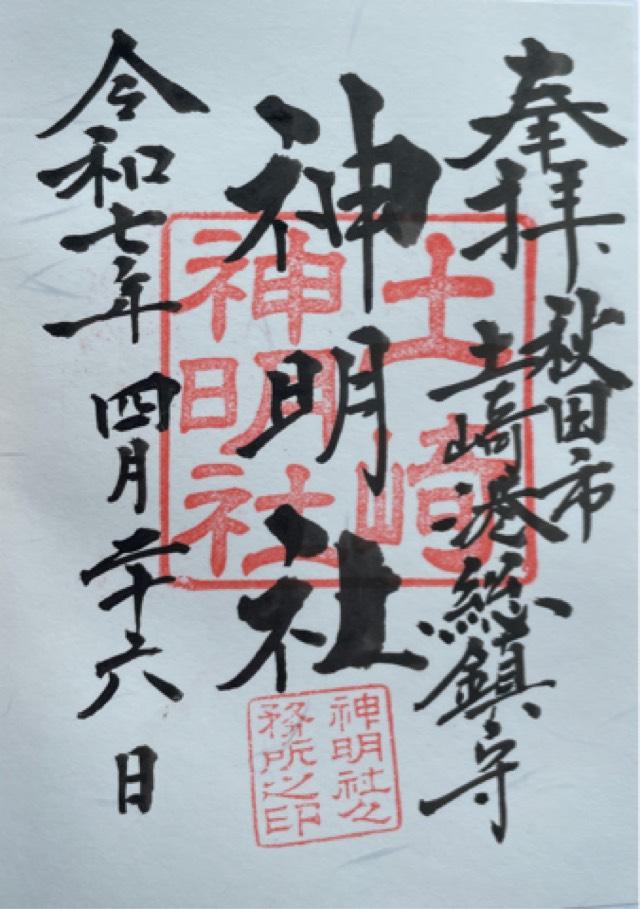 奉拝
秋田市
土崎港総鎮守
神明社
令和七年 四月二十六日
土崎
神明社
神明社
務所之印